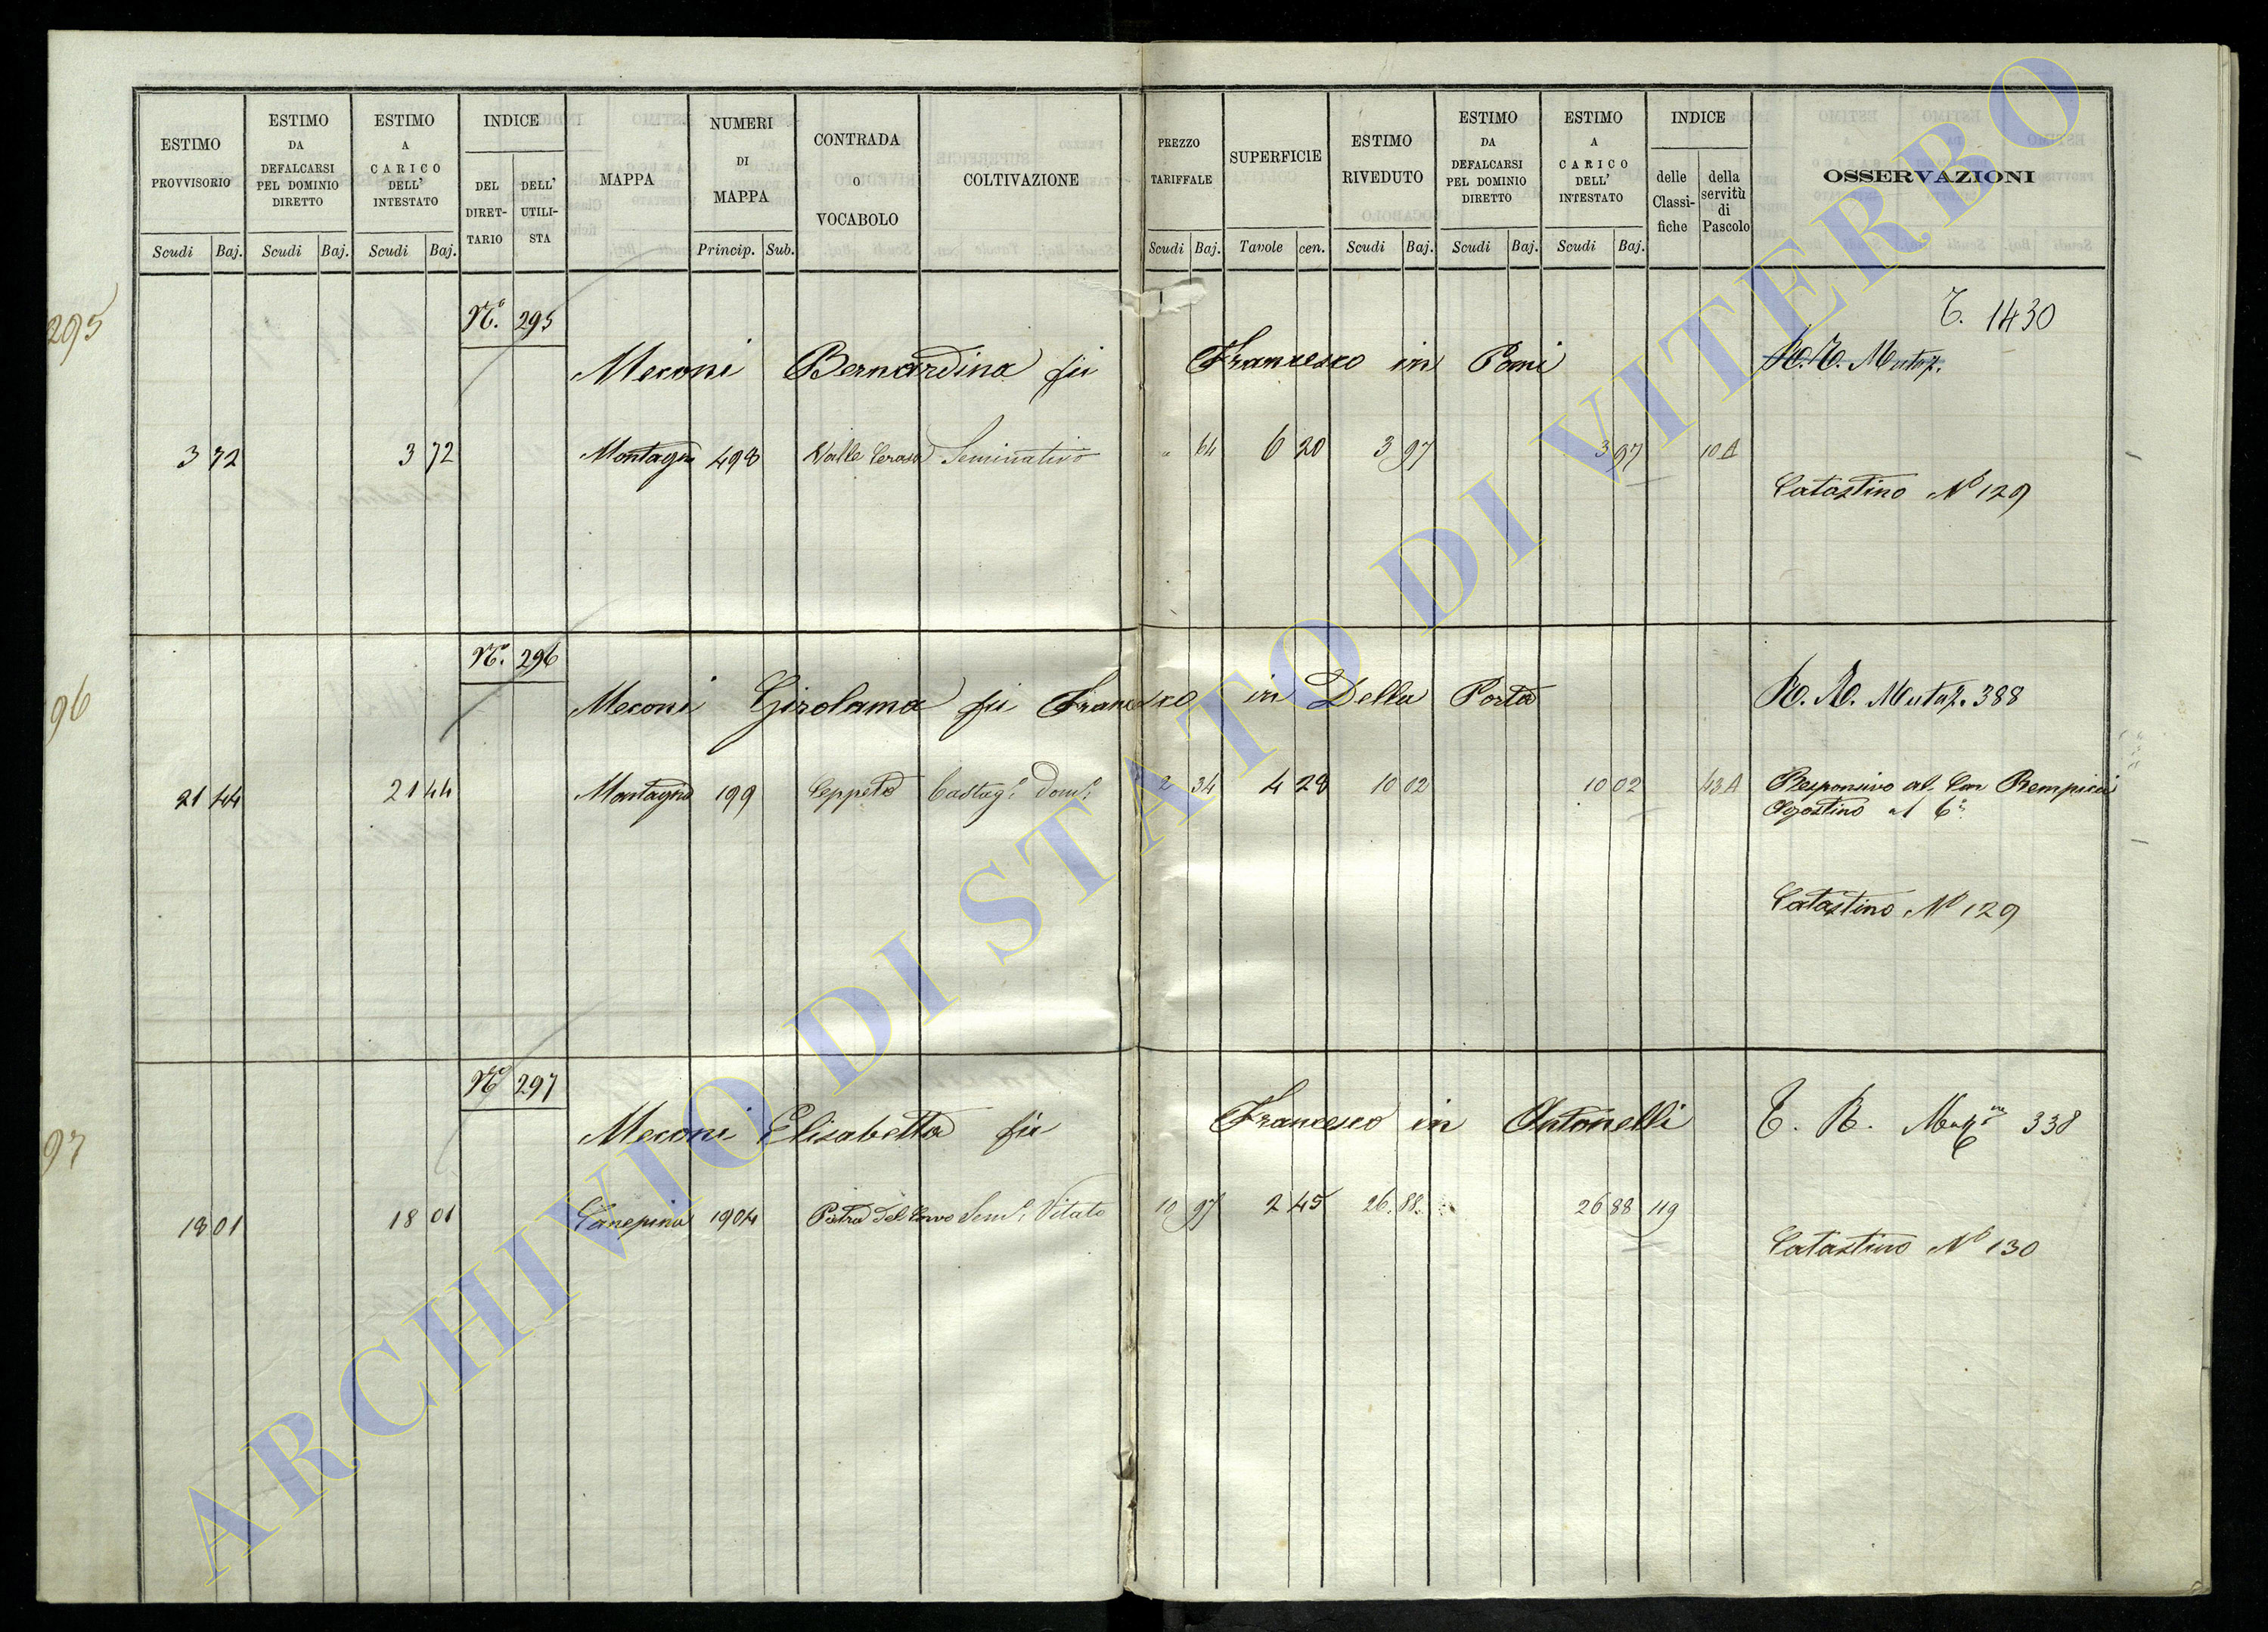 ESTIMO PROVVISORIO
Scudi Baj.
ESTIMO DA DEFALCARSI PEL DOMINIO DIRETTO
Scudi Baj.
ESTIMO A CARICO DELL' INTESTATO
Scudi Baj.
INDICE
DEL DIRET-TARIO
DELL' UTILI-STA
MAPPA
NUMERI DI MAPPA
Princip. Sub.
CONTRADA O VOCABOLO
COLTIVAZIONE
PREZZO TARIFFALE
Scudi Baj.
SUPERFICIE
Tavole cen.
ESTIMO RIVEDUTO
Scudi Baj.
ESTIMO DA DEFALCARSI PEL DOMINIO DIRETTO
Scudi Baj.
ESTIMO A CARICO DELL' INTESTATO
Scudi Baj.
INDICE
delle Classi-fiche
della servitù di Pascolo
OSSERVAZIONI
295
N.° 295
T. 1430
Meconi Bernardina fu Francesco in Pomi
R. T. Mutaz.
3 72 3 72 Montagna 498 Valle Cerasa Seminativo " 64 6 20 3 97 3 97 10 A
Catastino N° 129
96
N.° 296
Meconi Girolama fu Francesco in Della Porta
R. R. Mutaz. 388
21 44 21 44 Montagna 199 Ceppeto Castag.° Dom.° 2 34 4 28 10 02 10 02 43 A
Responsivo al Can Rempicci
Agostino al 6°
Catastino N° 129
97
N° 297
Meconi Elisabetta fu Francesco in Antonelli
T. R. 338
18 01 18 01 Canepina 1904 Pietra del Corvo Sem.° Vitato 10 97 2 45 26 88 26 88 119
Catastino N° 130
ARCHIVIO DI STATO DI VITERBO